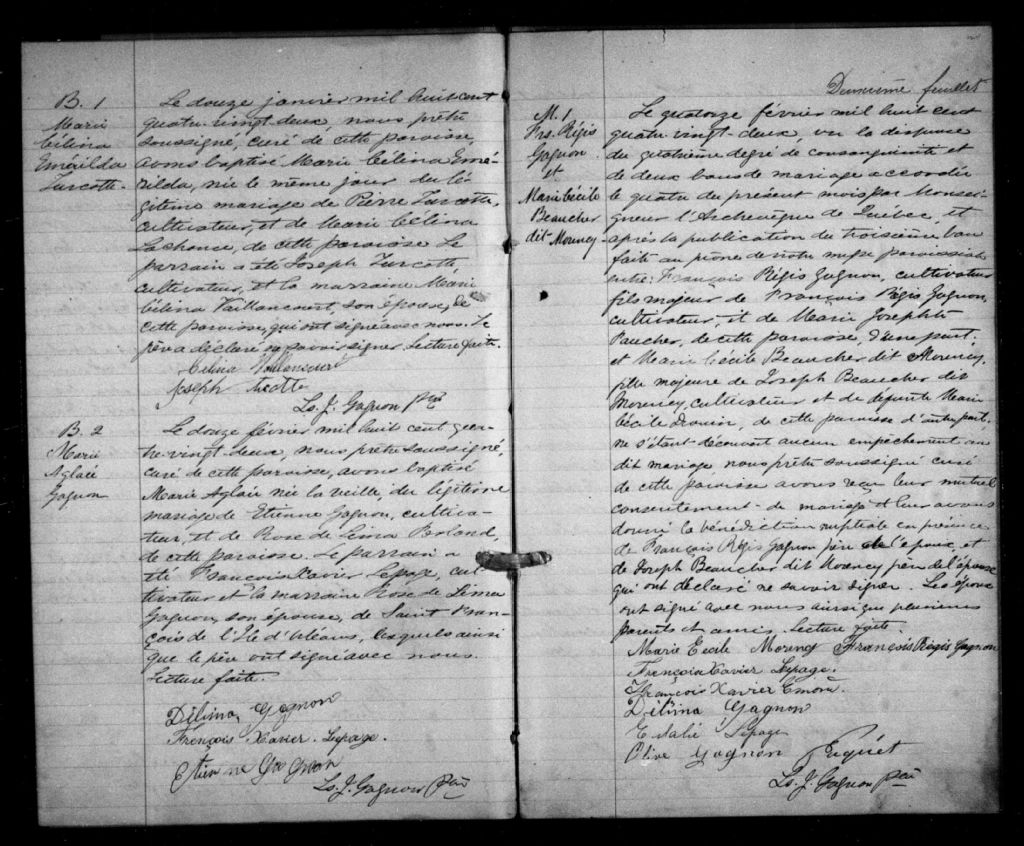 B. 1
Marie
Célina
Emérilda
Turcotte.
Le douze janvier mil huit cent
quatre-vingt-deux, nous prêtre
soussigné, curé de cette paroisse,
avons baptisé Marie Célina Emé-
rilda, née le même jour du lé-
gitime mariage de Pierre Turcotte,
cultivateur, et de Marie Célina
Lachance, de cette paroisse. Le
parrain a été Joseph Turcotte,
cultivateur, et la marraine Marie
Célina Vaillancourt, son épouse, de
cette paroisse, qui ont signé avec nous. Le
père a déclaré ne savoir signer. Lecture faite.
Célina
Joseph
Ls. J. Gagnon Ptre
B. 2
Marie
Aglaé
Gagnon
Le douze février mil huit cent qua-
tre-vingt-deux, nous prêtre soussigné,
curé de cette paroisse, avons baptisé
Marie Aglaé née la veille, du légitime
mariage de Etienne Gagnon, cultiva-
teur, et de Rose de Lima
de cette paroisse. Le parrain a
été François Xavier Lepage, cul-
tivateur et la marraine Rose de Lima
Gagnon, son épouse, de Saint Fran-
çois de l'Ile d'Orléans, lesquels ainsi
que le père ont signé avec nous.
Lecture faite.
Délima Gagnon
François Xavier Lepage.
Etienne Gagnon
Ls. J. Gagnon Ptre
Deuxième feuillet
M. 1
Frs. Régis
Gagnon
et
Marie Cécile
Beaucher
dit Morency
Le quatorze février mil huit cent
quatre-vingt-deux, vu la dispense
du quatrième degré de consanguinité et
de deux bans de mariage accordée
le quatre du présent mois par Monsei-
gneur l'Archevêque de Québec, et
après la publication du troisième ban
faite au prône de notre messe paroissiale
entre: François Régis Gagnon, cultivateur
fils majeur de François Régis Gagnon,
cultivateur, et de Marie Josephte
de cette paroisse, d'une part;
et Marie Cécile Beaucher dit Morency,
fille majeure de Joseph Beaucher dit
Morency, cultivateur et de défunte Marie
Cécile Drouin, de cette paroisse d'autre part,
ne s'étant découvert aucun empêchement au
dit mariage nous prêtre soussigné curé
de cette paroisse avons reçu leur mutuel
consentement de mariage et leur avons
donné la bénédiction nuptiale en présence
de François Régis Gagnon père de l'époux, et
de Joseph Beaucher dit Morency père de l'épouse
qui ont déclaré ne savoir signer. Les époux
ont signé avec nous ainsi que plusieurs
parents et amis. Lecture faite.
Marie Cécile Morency François Régis Gagnon
François Xavier Lepage.
François Xavier Emond.
Délima Gagnon
Lepage
Olive Gagnon
Ls. J. Gagnon Ptre